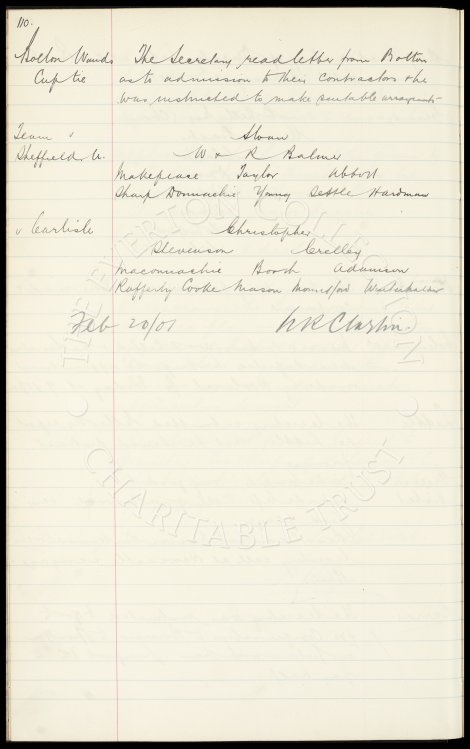 110.
Bolton Wands The Secretary read letter from Bolton
Cup tie as to admission to their contractors & he
was instructed to make suitable arrangmts
Team v Sloan
Sheffield U. W & R Balmer
Makepeace Taylor Abbott
Sharp Donnachie Young Settle Hardman
v Carlisle Christopher
Stevenson Crelley
Maconnachie Booth Adamson
Rafferty Cooke Mason Mountford
Feb 20/07 W R Clayton
THE EVERTON COLLECTION
CHARITABLE TRUST